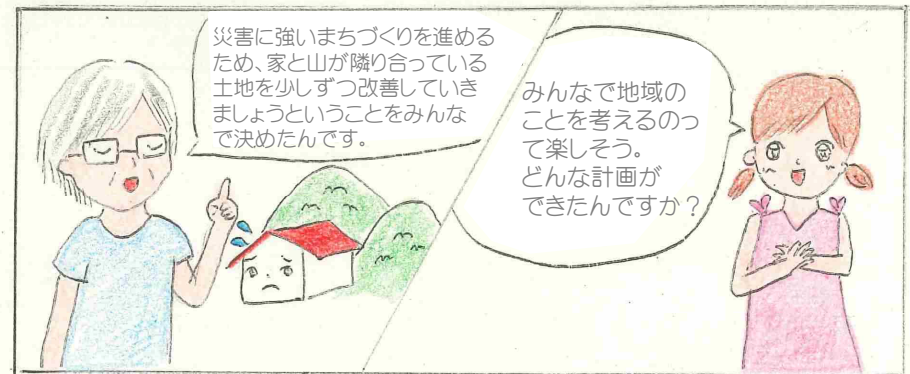 災害に強いまちづくりを進める
ため、家と山が隣り合っている
土地を少しずつ改善していき
ましょうということをみんな
で決めたんです。
みんなで地域の
ことを考えるのっ
て楽しそう。
どんな計画が
できたんですか？